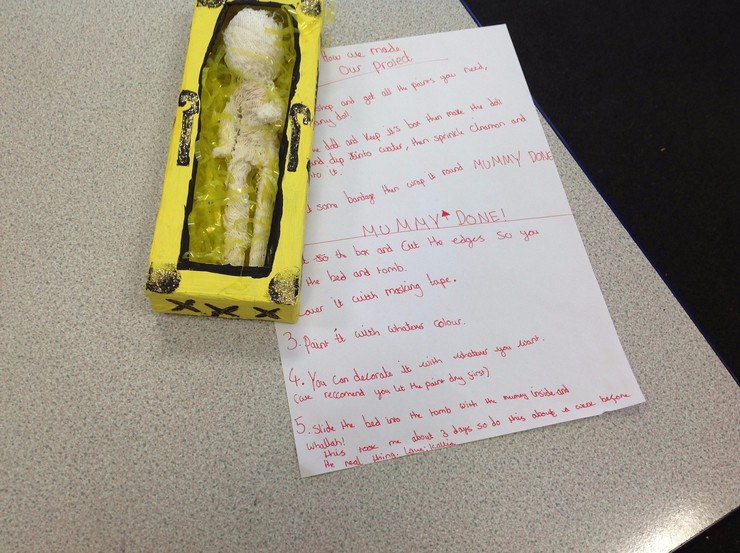 How we made
Our project
shop and get all the paints you need,
any doll.
doll and keep it's box then make the doll
and dip into water, then sprinkle cinamon and
to it.
some bandage then wrap it round MUMMY DONE
MUMMY DONE!
the box and Cut the edges so you
the bed and tomb.
over it with masking tape.
3. Paint it with whatever colour.
4. You can decorate it with whatever you want.
(we reccomend you let the paint dry first)
5. Slide the bed into the tomb with the mummy inside and
whallah!
this took me about 3 days so do this about a week before
the real thing. Love: Kallia
XXX